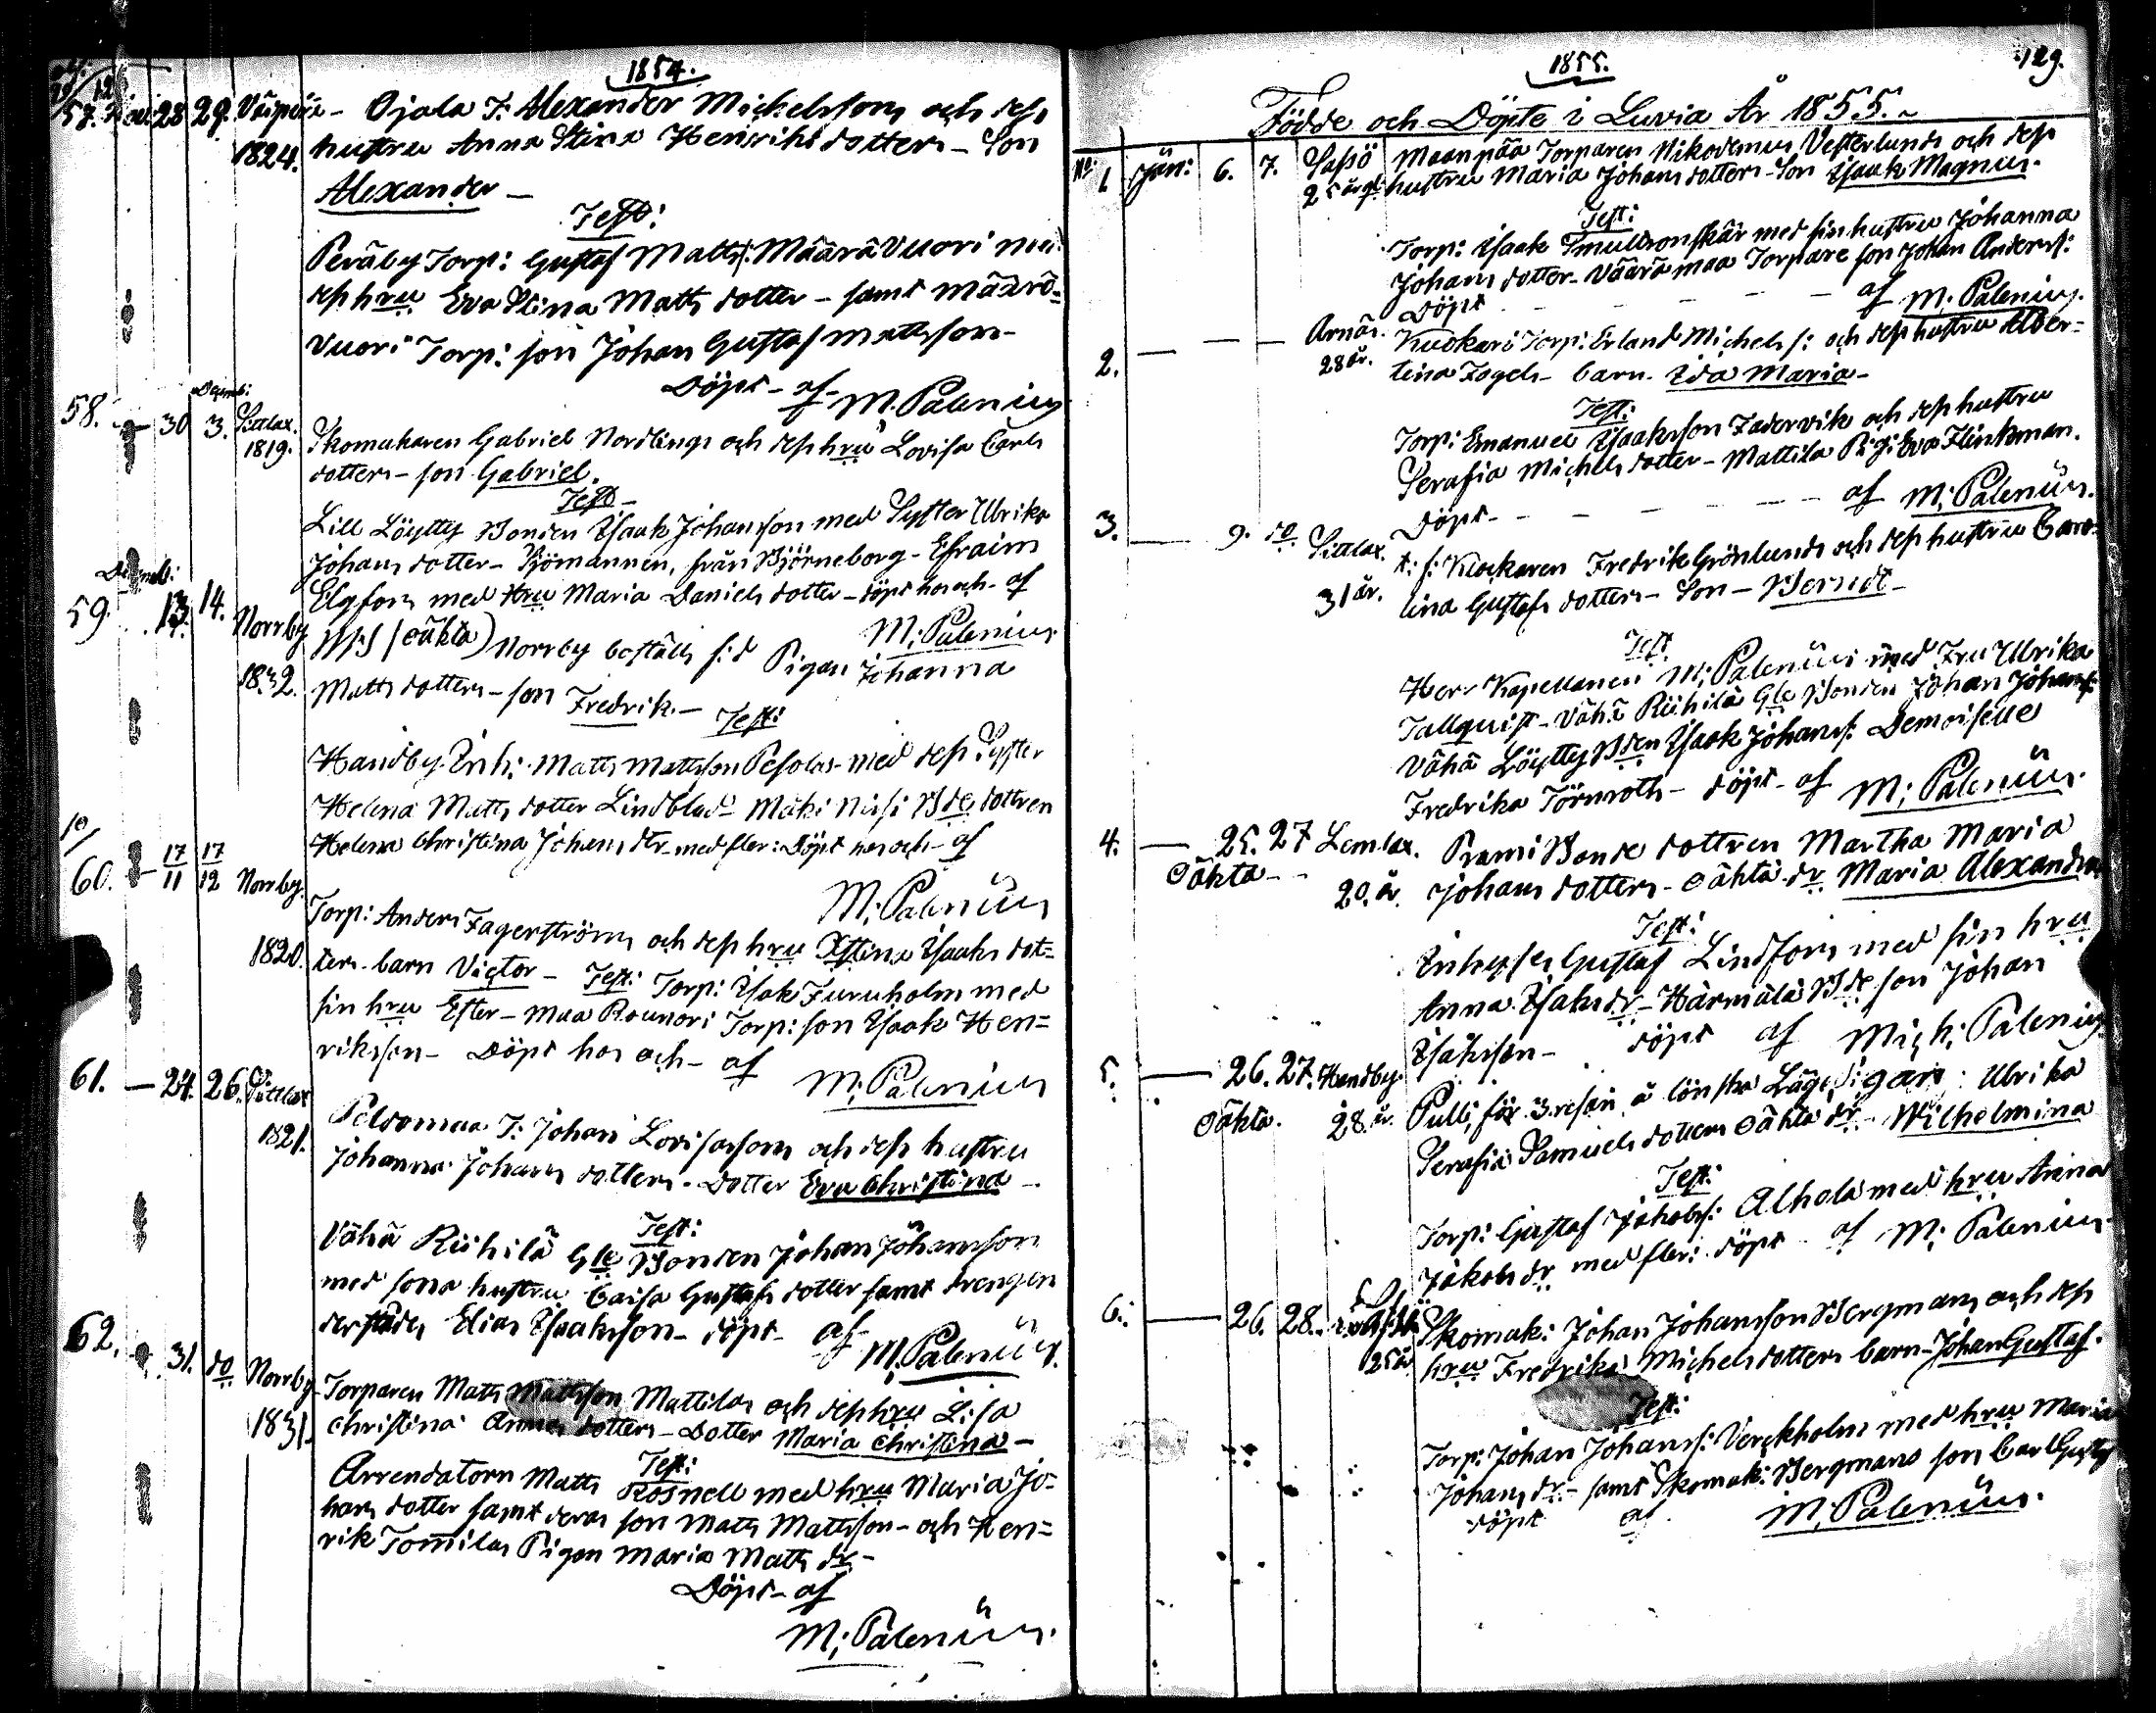 1854.
57. Nov: 28 29. Väiperä - Ojala T: Alexander Michelsson och dess
1824. hustru Anna Stina Henriksdotters - Son
Alexander -
Test:
Peräby Torp: Gustaf Matts: Määrävuori med
dess hru Eva Stina Matts dotter - samt Määrä=
vuori Torp: son Johan Gustaf Mattsson -
Döpt - af M. Palenius
Decemb:
58. - 30 3. Sittlax. Skomakaren Gabriel Nordlings och dess hru Lovisa Carls
1819. dotters - son Gabriel.
Test -
Lill Löytty Bonden Isaak Johansson med Syster Ulrika
Johans dotter - Sjömannen, från Björneborg - Efraim
Elgfors med Hru Maria Daniels dotter - döpt hos och - af
M: Palenius
Decemb:
59. 13. 14. Norrby (oäkta) Norrby boställs Pigan Johanna
1832. Matts dotters - son Fredrik. -
Test:
Handby Enk: Matts Mattsson Pesolas - med dess Syster
Helena Matts dotter Lindblad - Mäki Nissi Bde dottren
Helena Christina Johans dtr - med fler: Döpt hos och - af
M: Palenius
60. - 17/11 17/12 Norrby. Torp: Anders Fagerströms och dess hru Xstina Isaaks dot=
1820. ters - barn Victor - Test: Torp: Isak Furuholm med
sin hru Ester - Maa Rounori Torp: son Isaak Hen=
riksson - Döpt hos och - af
M: Palenius
61. - 24. 26. Sittlax Peldomaa T: Johan Lovisassons och dess hustru
1821. Johanna Johans dotters - Dotter Eva Christina -
Test:
Vähä Riihilä Gle Bonden Johan Johansson
med sona hustru Caisa Gustafs dotter samt drengen
derstädes Elias Isaaksson - döpt - af
M. Palenius.
62. 31. do Norrby Torparen Matts Mattsson Mattilas och dess hru Lisa
1831. Christina Annas dotters - Dotter Maria Christina -
Test:
Arrendatorn Matts Rosnell med hru Maria Jo-
hans dotter samt deras son Matts Mattsson - och Hen=
rik Tomilas Pigan Maria Matts dr -
Döpt - af
M: Palenius.
1855. 129.
Födde och Döpte i Luvia År 1855. -
No: 1. Jan: 6. 7. Sassö Maanpää Torparen Nikodemus Vesterlunds och dess
25 år gl: hustru Maria Johans dotters - Son Isaak Magnus.
Test:
Torp: Isaak Smultronskär med sin hustru Johanna
Johans dotter - Väärämaa Torpare son Johan Anders:
Döpt - - - - af M: Palenius.
2. - - - Arnäs. Kuokari Torp: Erland Michels s: och dess hustru Alber=
28 år. tina Fagels - barn - Ida Maria -
Test:
Torp: Emanuel Isaaksson Fadervik och dess hustru
Serafia Michels dotter - Mattila Pig: Eva Flinkman.
Döpt - - - - af M: Palenius.
3. - 9. do Sittlax. Klockaren Fredrik Grönlunds och dess hustru Caro-
31 år. lina Gustafs dotters - Son - Berndt -
Test
Herr Kapellanen M: Palenius med Fru Ulrika
Tallquist - Vähä Riihilä Gle Bonden Johan Johans:
Vähä Löytty Bden Isaak Johans: Demoiselle
Fredrika Törnroth - döpt - af M: Palenius.
4. - 25. 27 Lemlax. Prami Bonde dottren Martha Maria
Oäkta - 20. år. Johans dotters - Oäkta dr Maria Alexandra
Test:
Inhyses Gustaf Lindfors med sin hru
Anna Isaksdr - Härmälä Bde son Johan
Isaksson - döpt af Mich: Palenius
5. - 26. 27. Handby. Pulli, för 3. resan å lönska Läge Pigan Ulrika
Oäkta. 28. år. Serafia Samuels dotters Oäkta dr - Wilhelmina
Test:
Torp: Gustaf Jakobs: Alhola med hru Anna
Jakobs dr med fler: döpt - af M: Palenius
6: - 26. 28. Sassö Skomak: Johan Johansson Bergmans och dess
25 år hru Fredrika Michelsdotters barn - Johan Gustaf.
Test:
Torp: Johan Johans: Verckholm med hru Maria
Johans dr - samt Skomak: Bergmans son Carl Gustaf
döpt af M. Palenius.